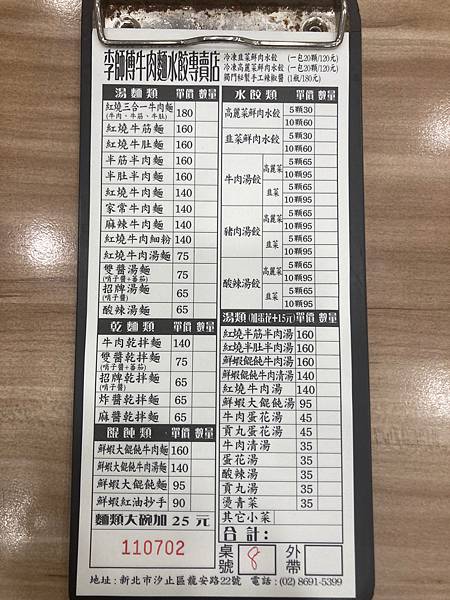 李師傅牛肉麵水餃專賣店
冷凍韭菜鮮肉水餃 (一包20顆/120元)
冷凍高麗菜鮮肉水餃 (一包20顆/120元)
獨門秘製手工辣椒醬 (1瓶/180元)
湯麵類 單價 數量
紅燒三合一牛肉麵 180
(牛肉、牛筋、牛肚)
紅燒牛筋麵 160
紅燒牛肚麵 160
半筋半肉麵 160
半肚半肉麵 160
紅燒牛肉麵 140
家常牛肉麵 140
麻辣牛肉麵 140
紅燒牛肉細粉 140
紅燒牛肉湯麵 75
雙醬湯麵 75
(哨子醬+蕃茄)
招牌湯麵 65
(哨子醬)
酸辣湯麵 65
乾麵類 單價 數量
牛肉乾拌麵 140
雙醬乾拌麵 75
(哨子醬+蕃茄)
招牌乾拌麵 65
(哨子醬)
炸醬乾拌麵 65
麻醬乾拌麵 65
餛飩類 單價 數量
鮮蝦大餛飩牛肉麵 160
鮮蝦大餛飩牛肉湯麵 140
鮮蝦大餛飩麵 95
鮮蝦紅油抄手 90
麵類大碗加 25 元
110702
水餃類 單價 數量
高麗菜鮮肉水餃 5顆30
10顆60
韭菜鮮肉水餃 5顆30
10顆60
牛肉湯餃 高麗菜 5顆65
10顆95
韭菜 5顆65
10顆95
豬肉湯餃 高麗菜 5顆65
10顆95
韭菜 5顆65
10顆95
酸辣湯餃 高麗菜 5顆65
10顆95
韭菜 5顆65
10顆95
湯類(加蛋花+15元) 單價 數量
紅燒半筋半肉湯 160
紅燒半肚半肉湯 160
鮮蝦餛飩牛肉湯 160
鮮蝦餛飩牛肉清湯 140
紅燒牛肉湯 140
鮮蝦大餛飩湯 95
牛肉蛋花湯 45
貢丸蛋花湯 45
牛肉清湯 35
蛋花湯 35
酸辣湯 35
貢丸湯 35
燙青菜 35
其它小菜
合計:
桌號 8 外帶
地址:新北市汐止區龍安路22號 電話:(02) 8691-5399